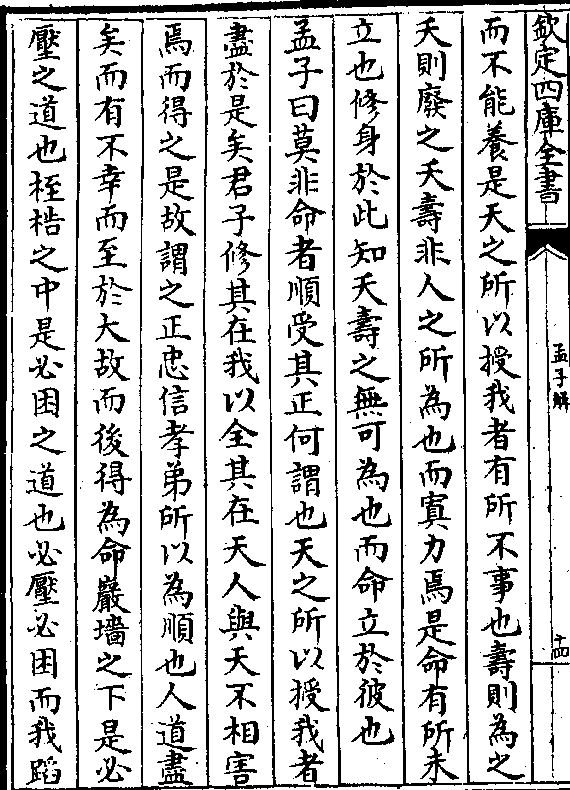 欽定四庫全書
孟子解
十四
而不能養是天之所以授我者有所不事也壽則為之
夭則廢之夭壽非人之所為也而寘力焉是命有所未
立也修身於此知夭壽之無可為也而命立於彼也
孟子曰莫非命者順受其正何謂也天之所以授我者
盡於是矣君子修其在我以全其在天人與天不相害
焉而得之是故謂之正忠信孝弟所以為順也人道盡
矣而有不幸而至於大故而後得為命巖墻之下是必
壓之道也桎梏之中是必困之道也必壓必困而我蹈